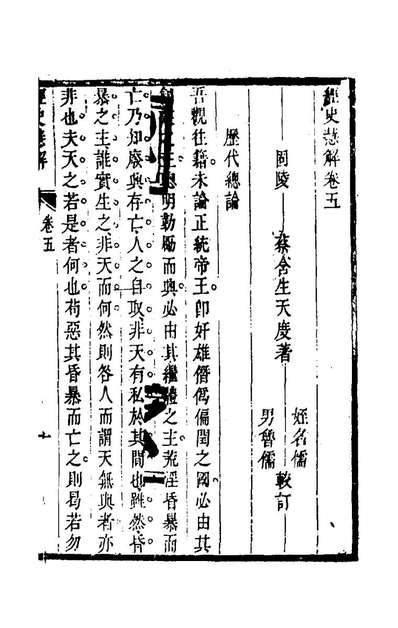 經史慧解卷五
固陵 蔡含生天度著
姪名儒
男魯儒 較訂
歷代總論
吾觀往籍未論正統帝王卽奸雄僭僞偏閏之國必由其
明勤勵而興必由其繼體之主荒淫昏暴而
亡乃知廢興存亡人之自取非天有私於其間也雖然昏
暴之主誰實生之非天而何然則咎人而謂天無與者亦
非也夫天之若是者何也苟惡其昏暴而亡之則曷若勿
經史慧解
卷五